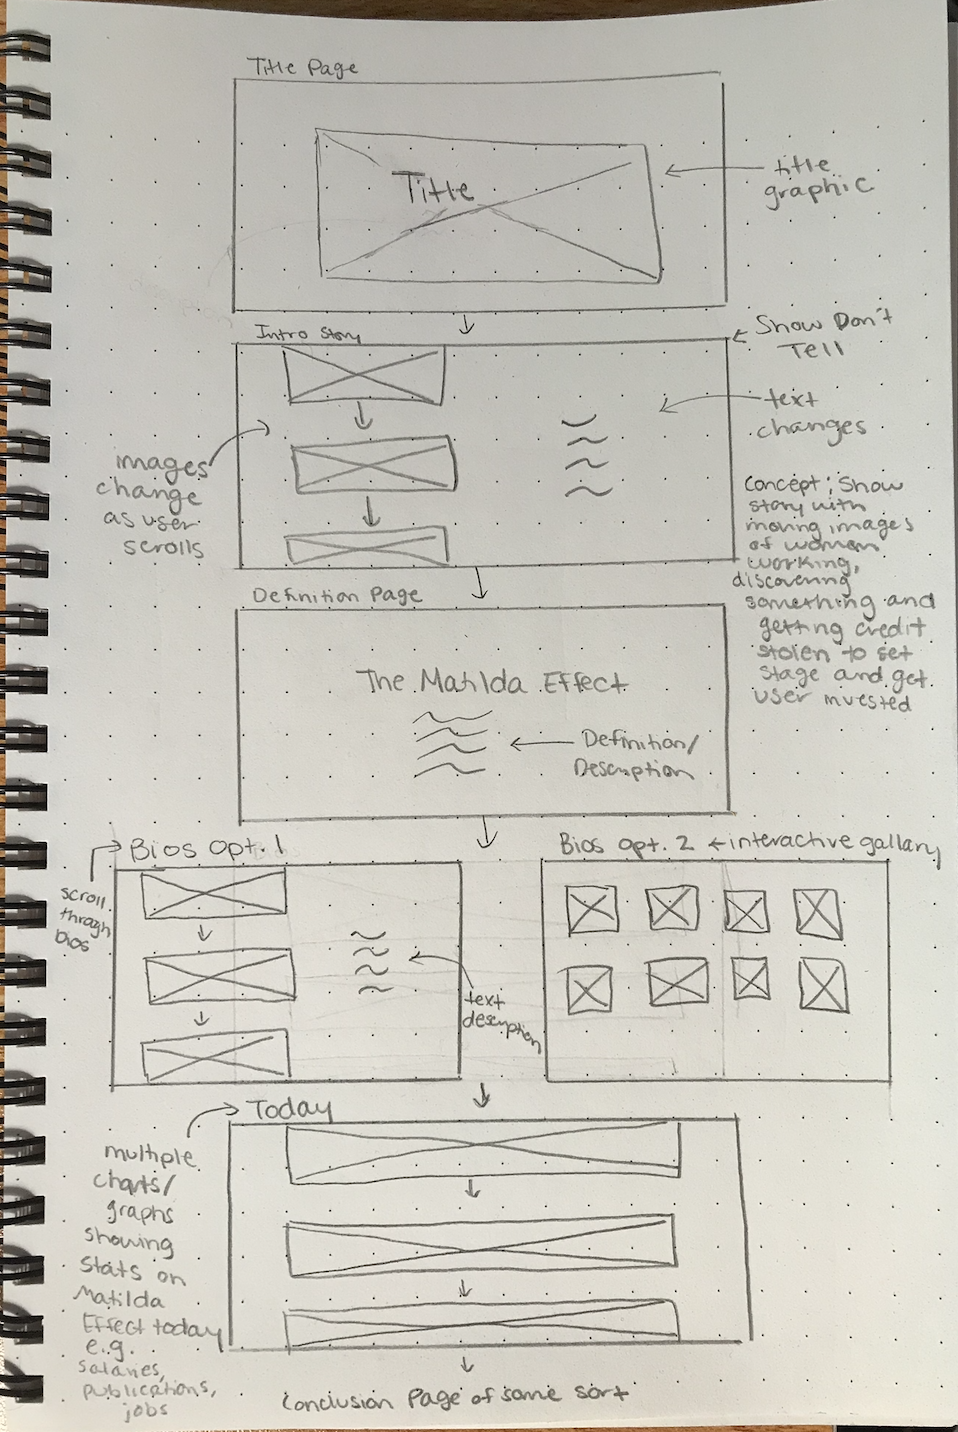 Title Page
Title
title
graphic
Intro Story
Show Don't
Tell
text
changes
images
change
as user
scrolls
Concept: Show
story with
moving images
of woman
working,
discovering
something and
getting credit
stolen to set
stage and get
user invested
Definition Page
The Matilda Effect
Definition/
Description
Bios Opt. 1
scroll
through
bios
text
description
Bios Opt. 2 ← interactive gallary
Today
multiple
charts/
graphs
showing
stats on
Matilda
Effect today
e.g.
salaries,
publications,
jobs
Conclusion Page of some sort